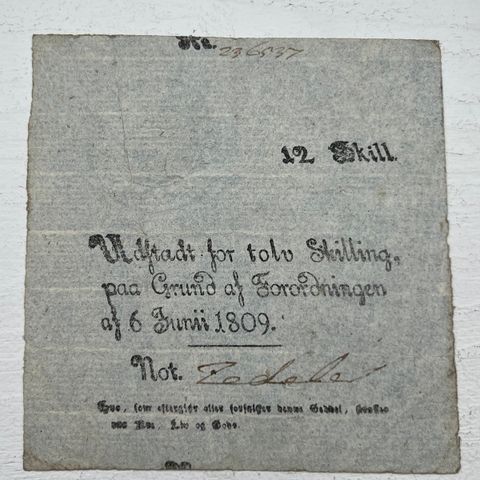 No. 236537
12 Skill.
Udstædt for tolv Skilling,
paa Grund af Forordningen
af 6 Junii 1809.
Not.
Hvo, som eftergiør eller forfalsker denne Seddel, straffes
paa Ære, Liv og Gods.